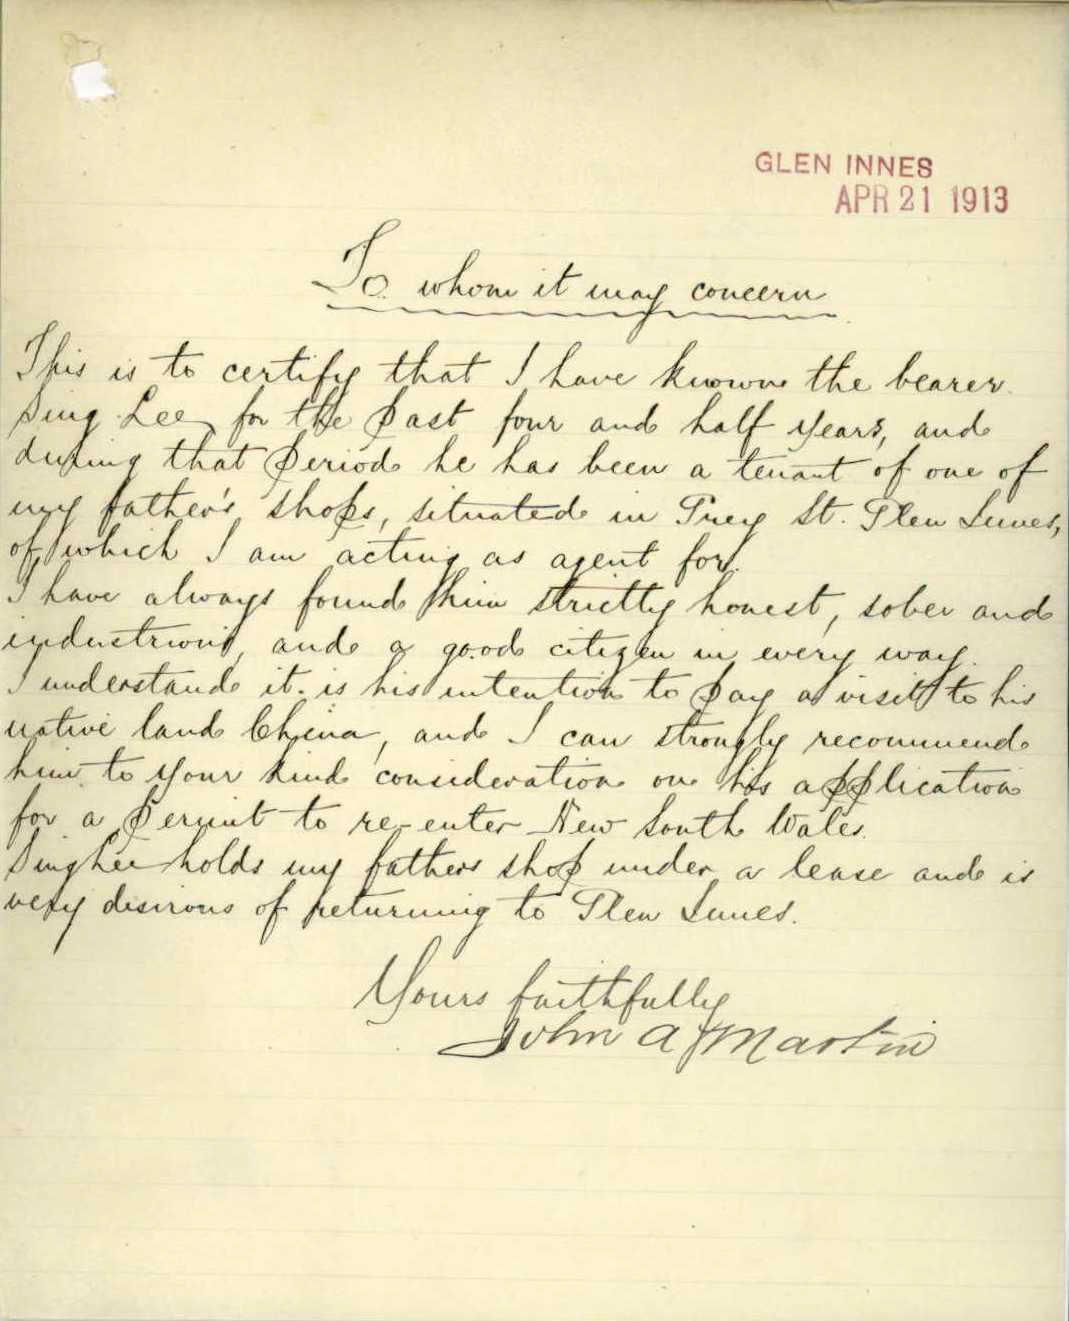 GLEN INNES
APR 21 1913
To whom it may concern
This is to certify that I have known the bearer
Sing Lee, for the past four and half years, and
during that period he has been a tenant of one of
my father's shops, situated in Grey St. Glen Innes,
of which I am acting as agent for.
I have always found him strictly honest, sober and
industrious, and a good citizen in every way.
I understand it is his intention to pay a visit to his
native land China, and I can strongly recommend
him to your kind consideration on his application
for a permit to re-enter New South Wales.
Sing Lee holds my fathers shop under a lease and is
very desirous of returning to Glen Innes.
Yours faithfully
John A Martin